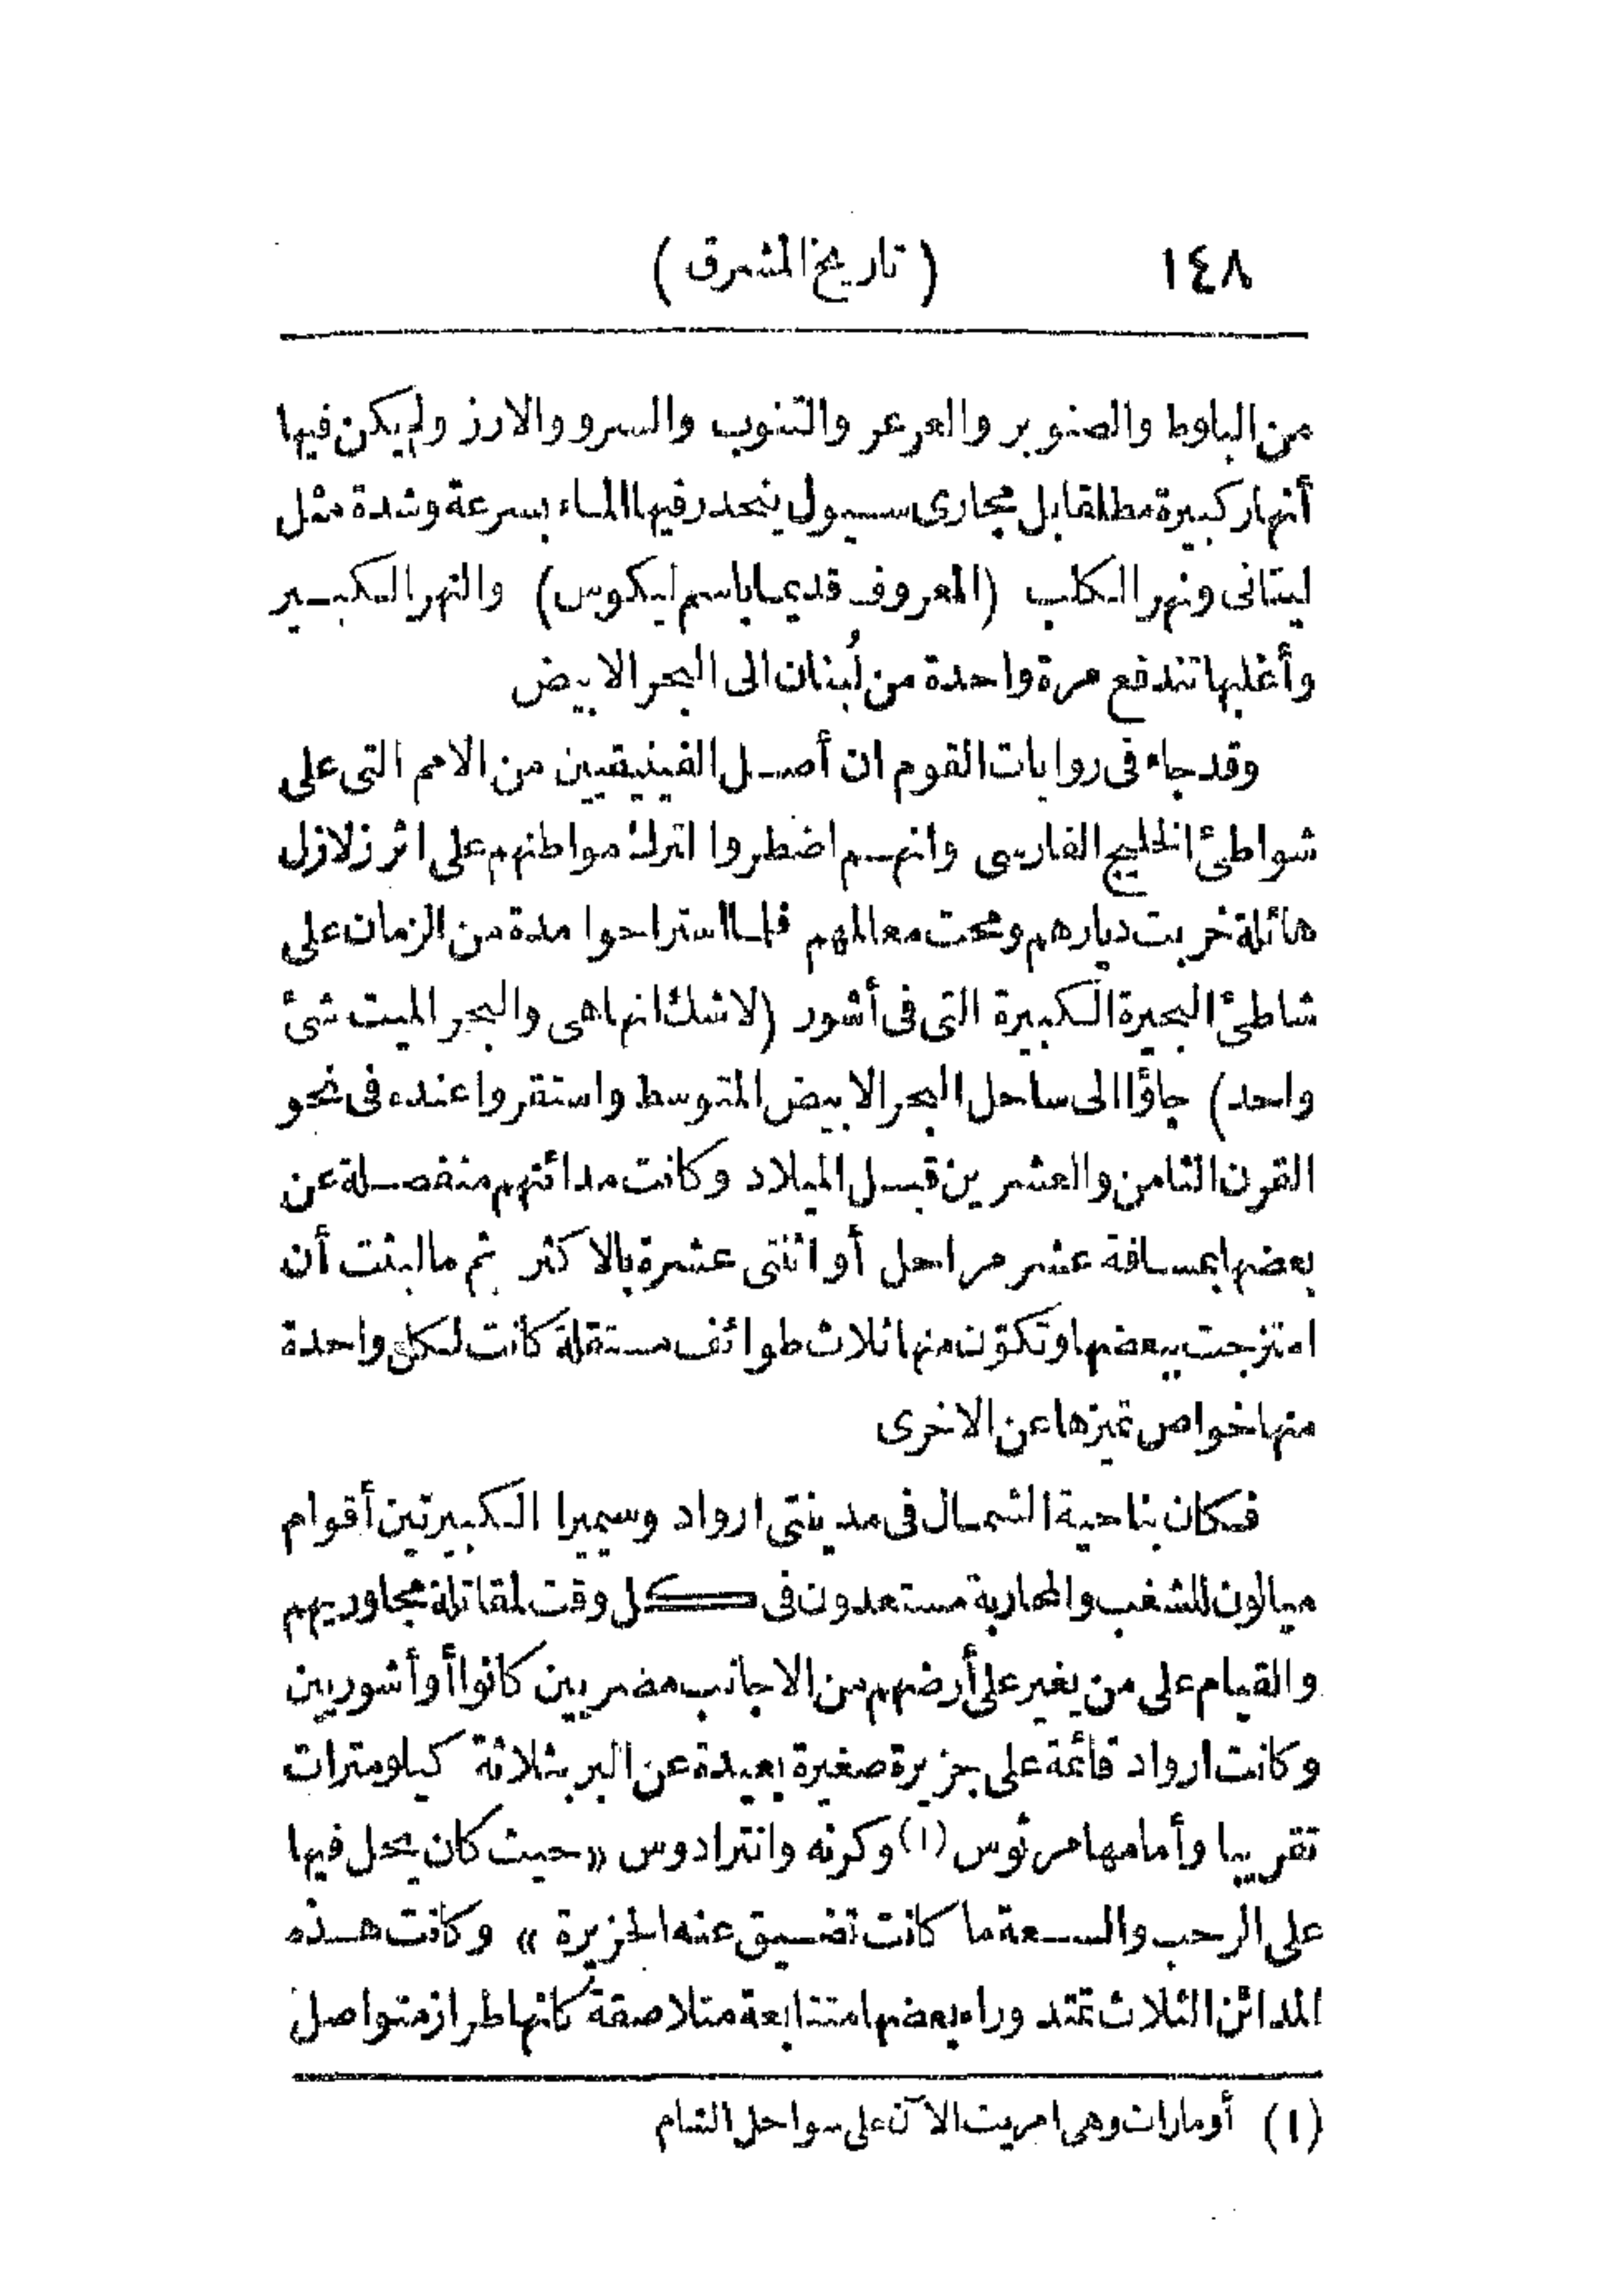 ١٤٨ (تاريخ المشرق)
من البلوط والصنوبر والعرعر والتنوب والسرو والارز ولم يكن فيها
أنهار كبيرة مطلقا بل مجارى سيول ينحدر فيها الماء بسرعة وشدة مثل
ليتانى ونهر الكلب (المعروف قديما باسم ليكوس) والنهر الكبير
وأغلبها تندفع مرة واحدة من لُبنان الى البحر الابيض
وقد جاء فى روايات القوم ان أصل الفينيقيين من الامم التى على
شواطئ الخليج الفارسى وانهم اضطروا لترك مواطنهم على اثر زلازل
هائلة خربت ديارهم ومحت معالمهم فلما استراحوا مدة من الزمان على
شاطئ البحيرة الكبيرة التى فى أشور (لاشك انها هى والبحر الميت شئ
واحد) جاؤا الى ساحل البحر الابيض المتوسط واستقروا عنده فى نحو
القرن الثامن والعشرين قبل الميلاد وكانت مدائنهم منفصلة عن
بعضها بمسافة عشر مراحل أو اثنتى عشرة بالاكثر ثم مالبثت أن
امتزجت ببعضها وتكوّن منها ثلاث طوائف مستقلة كانت لكل واحدة
منها خواص تميزها عن الاخرى
فكان بناحية الشمال فى مدينتى ارواد وسيميرا الكبيرتين أقوام
ميالون للشغب والمحاربة مستعدون فى كل وقت لمقاتلة مجاوريهم
والقيام على من يغير على أرضهم من الاجانب مصريين كانوا أو أشوريين
وكانت ارواد قائمة على جزيرة صغيرة بعيدة عن البر بثلاثة كيلومترات
تقريبا وأمامها مرثوس (١) وكرنه وانترادوس «حيث كان يحل فيها
على الرحب والسعة ما كانت تضيق عنه الجزيرة» وكانت هذه
المدائن الثلاث تمتد وراء بعضها متتابعة متلاصقة كانها طراز متواصل
(١) أو مارات وهى امريت الآن على سواحل الشام